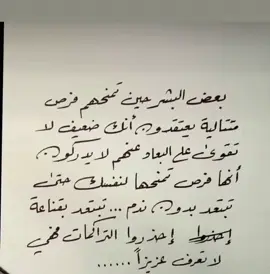 بعض البشر حين تمنحهم فرص
متتالية يعتقدون أنك ضعيف لا
تقوى على البعاد عنهم لا يدركون
أنها فرص تمنحها لنفسك حتى
تبتعد بدون ندم ... تبتعد بقناعة
إحذروا إحذروا التراكمات فهي
لا تعرف عزيزاً ......